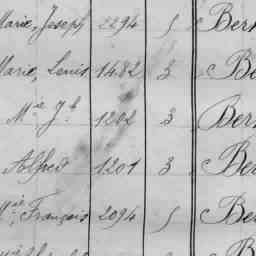 Marie, Joseph 2294 5 Ber
Marie, Louis 1482 3 Be
Mie Jh 1202 3 Ber
Alfred 1201 3 Be
Mie François 2094 5 Be